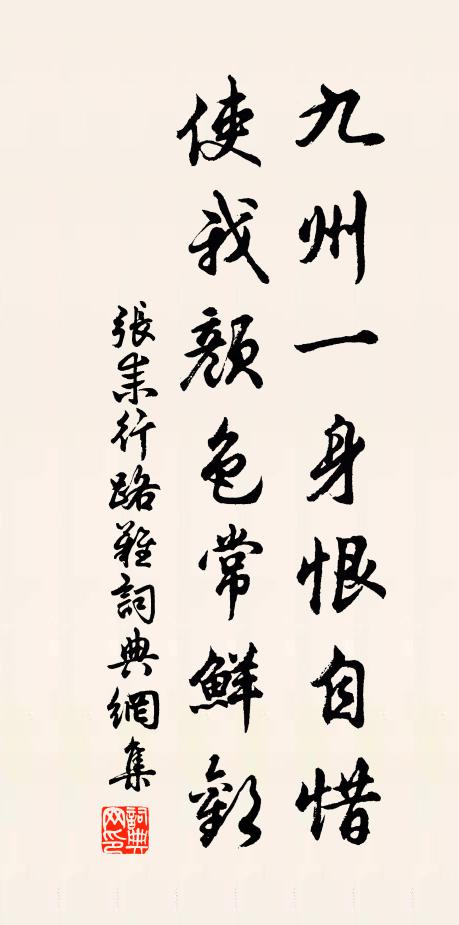 九州一身恨自惜
使我顏色常鮮歡
張耒行路難詞典網集
詞典網印